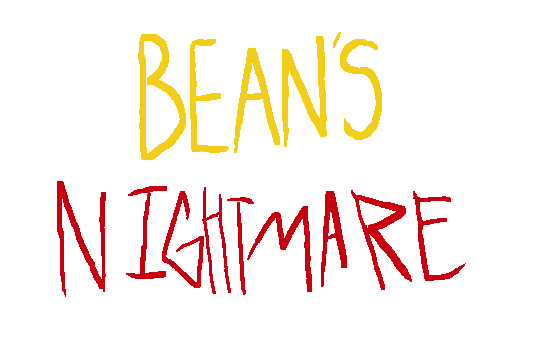 BEAN'S
NIGHTMARE